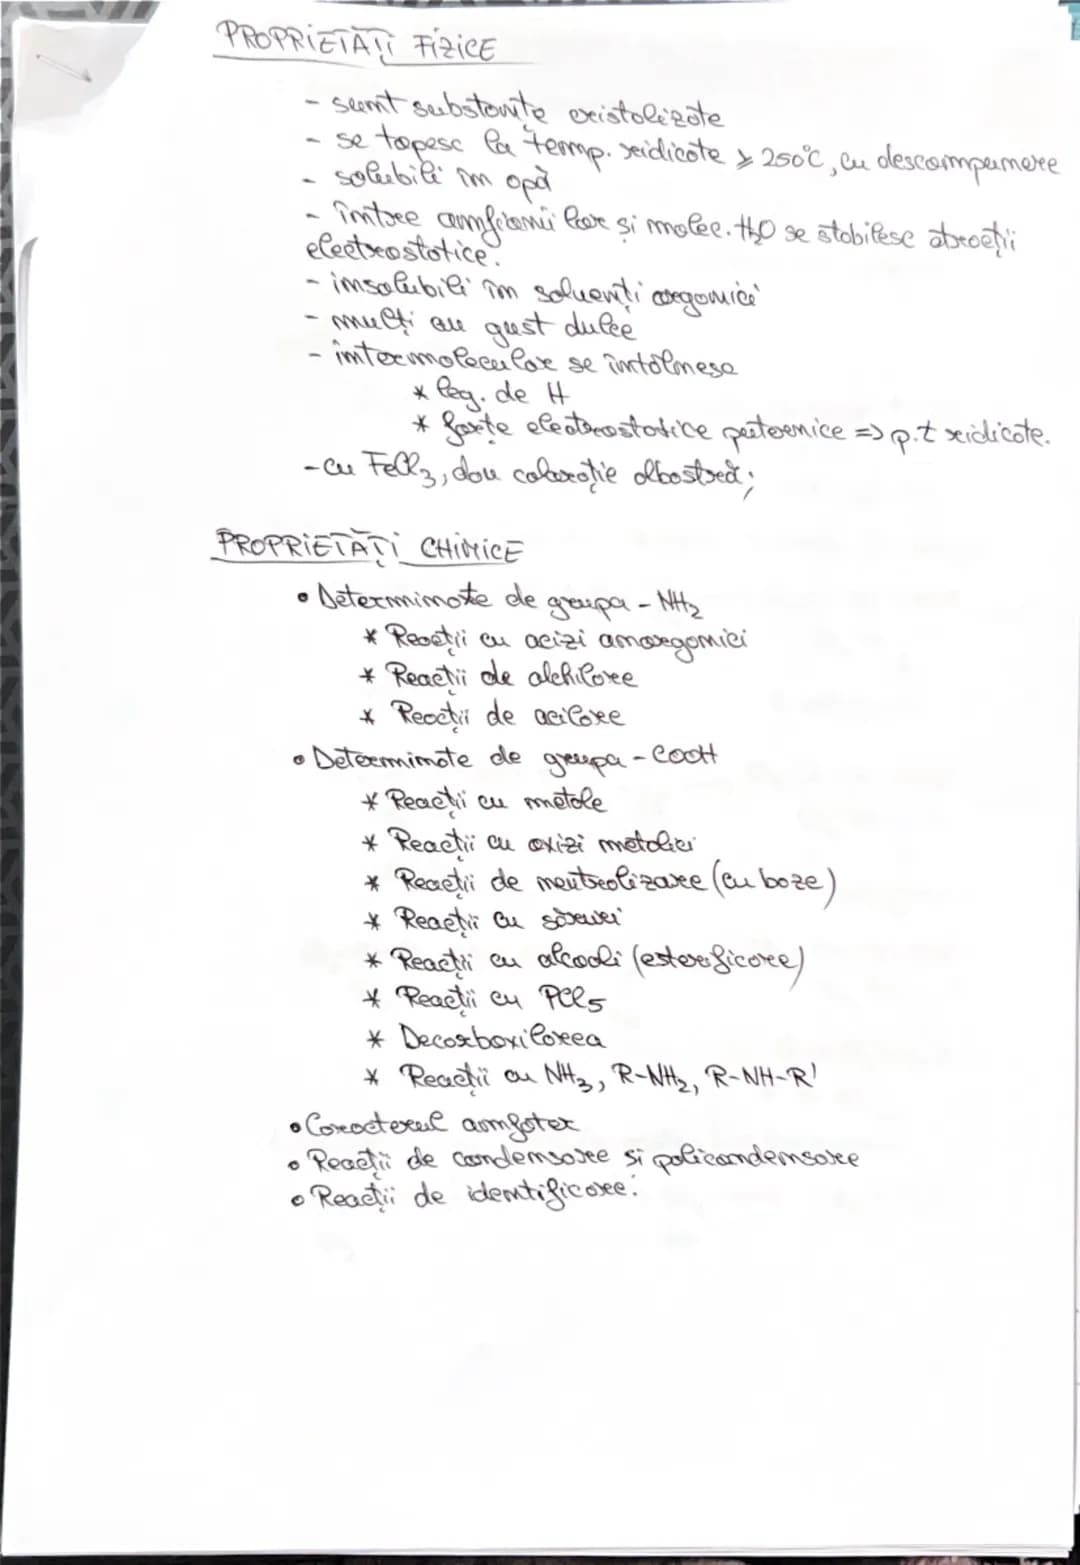 PROPRIETĂȚI FIZICE
- sunt substanțe cristalizate
- se topesc la temp. ridicate ≥ 250°C, cu descompunere
- solubili în apă
- între amfionii lor și molec. H₂O se stabilesc atracții
electrostatice.
- insolubili în solvenți organici
- mulți au gust dulce
- intermolecular se întâlnesc
* leg. de H
* forțe electrostatice puternice => p.t ridicate.
- cu FeCl₃, dau colorație albastră;
PROPRIETĂȚI CHIMICE
• Determinate de grupa - NH₂
* Reacții cu acizi anorganici
* Reacții de alchilare
* Reacții de acilare
• Determinate de grupa - COOH
* Reacții cu metale
* Reacții cu oxizi metalici
* Reacții de neutralizare (cu baze)
* Reacții cu săruri
* Reacții cu alcooli (esterificare)
* Reacții cu PCl₅
* Decarboxilarea
* Reacții cu NH₃, R-NH₂, R-NH-R'
• Caracterul amfoter
• Reacții de condensare și policondensare
• Reacții de identificare.